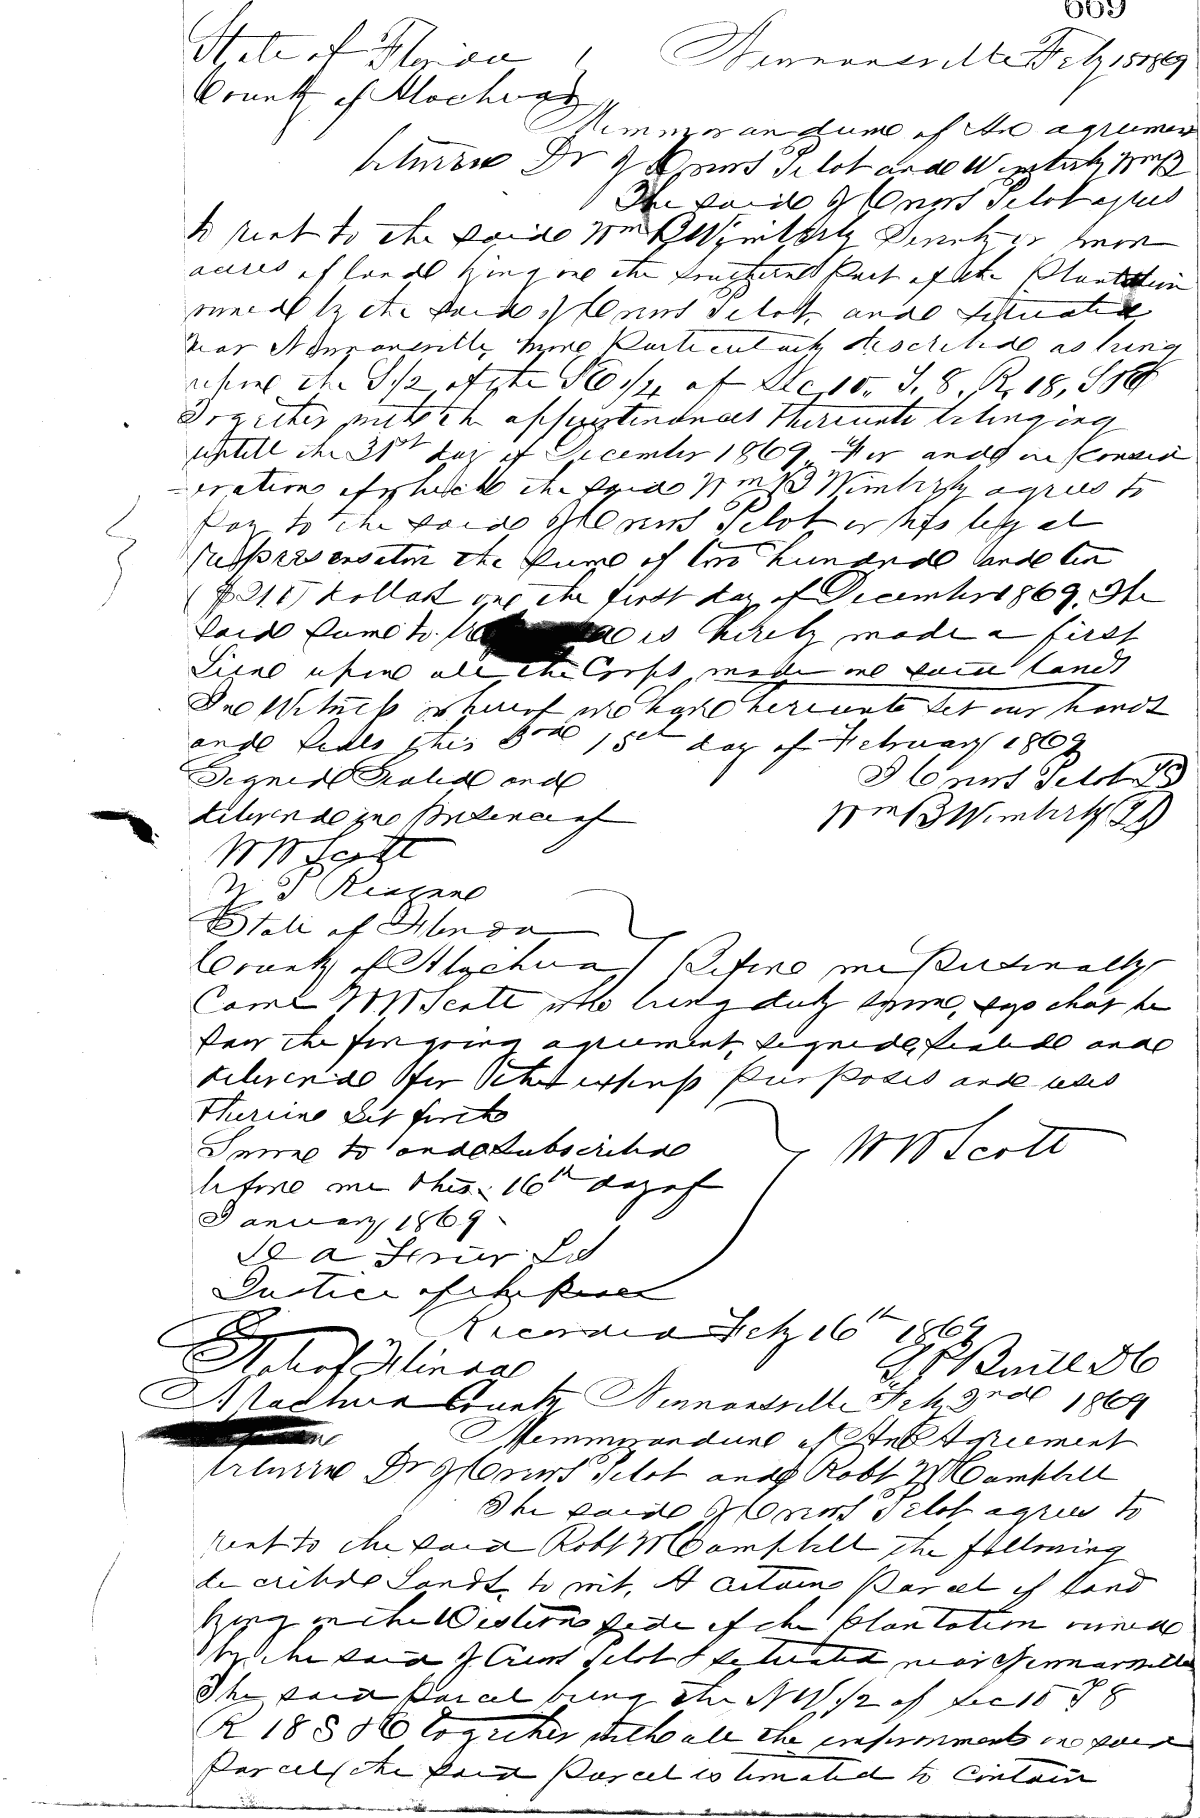 669
State of Florida } Newnansville Feby 15 1869
County of Alachua
Memmorandume of An agreement
betweene Dr J Crews Pelot ande Wimberly Wm B
The saide J Crews Pelot agrees
to rent to the saide Wm B Wimberly Seventy or more
acres of lande lying one the Southerne Part of the Plantation
owned by the saide J Crews Pelot, ande situated
near Newnansville, more Particularly described as being
upone the S 1/2 of the SE 1/4 of Sec 15, T. 8. R. 18, S & E
Together with the appurtenances thereunto belonging
untill the 31st day of December 1869. For ande in Consid
-eratione of which the saide Wm B Wimberly agrees to
Pay to the saide J Crews Pelot or his legal
representative the sume of two hundrede ande ten
($210) dollars one the first day of December 1869. The
saide sume to be is hereby made a first
Liene upone all the Crops made one saide lands
Ine Witness whereof we have hereunto set our hands
ande seals this 15th day of February 1869
Signed Sealed ande J Crews Pelot LS
deliverede ine Presence of Wm B Wimberly LS
W W Scott
State of Florida
County of Alachua } Before me Personally
Came W W Scott who being duly sworne, says that he
saw the forgoing agreement, signede, sealede ande
deliverede for the express Purposes ande uses
thereine set forth
Sworne to ande Subscribede W W Scott
before me this 16th day of
January 1869.
Justice of the Peace
Recorded Feby 16th 1869
State of Florida
Alachua County Newnansville Feby 2nd 1869
Memmorandume of An Agreement
betweene Dr J Crews Pelot ande Robt W Campbell
The saide J Crews Pelot agrees to
rent to the said Robt W Campbell the following
de cribede Lands, to wit, A certaine Parcel of land
lying on the Westerne side of the Plantation ownede
by the said J Crews Pelot & situated near Newnansville
The said Parcel being the NW 1/2 of Sec 15 T 8
R 18 S & E together with all the improvments one said
Parcel (the said Parcel estimated to Contain